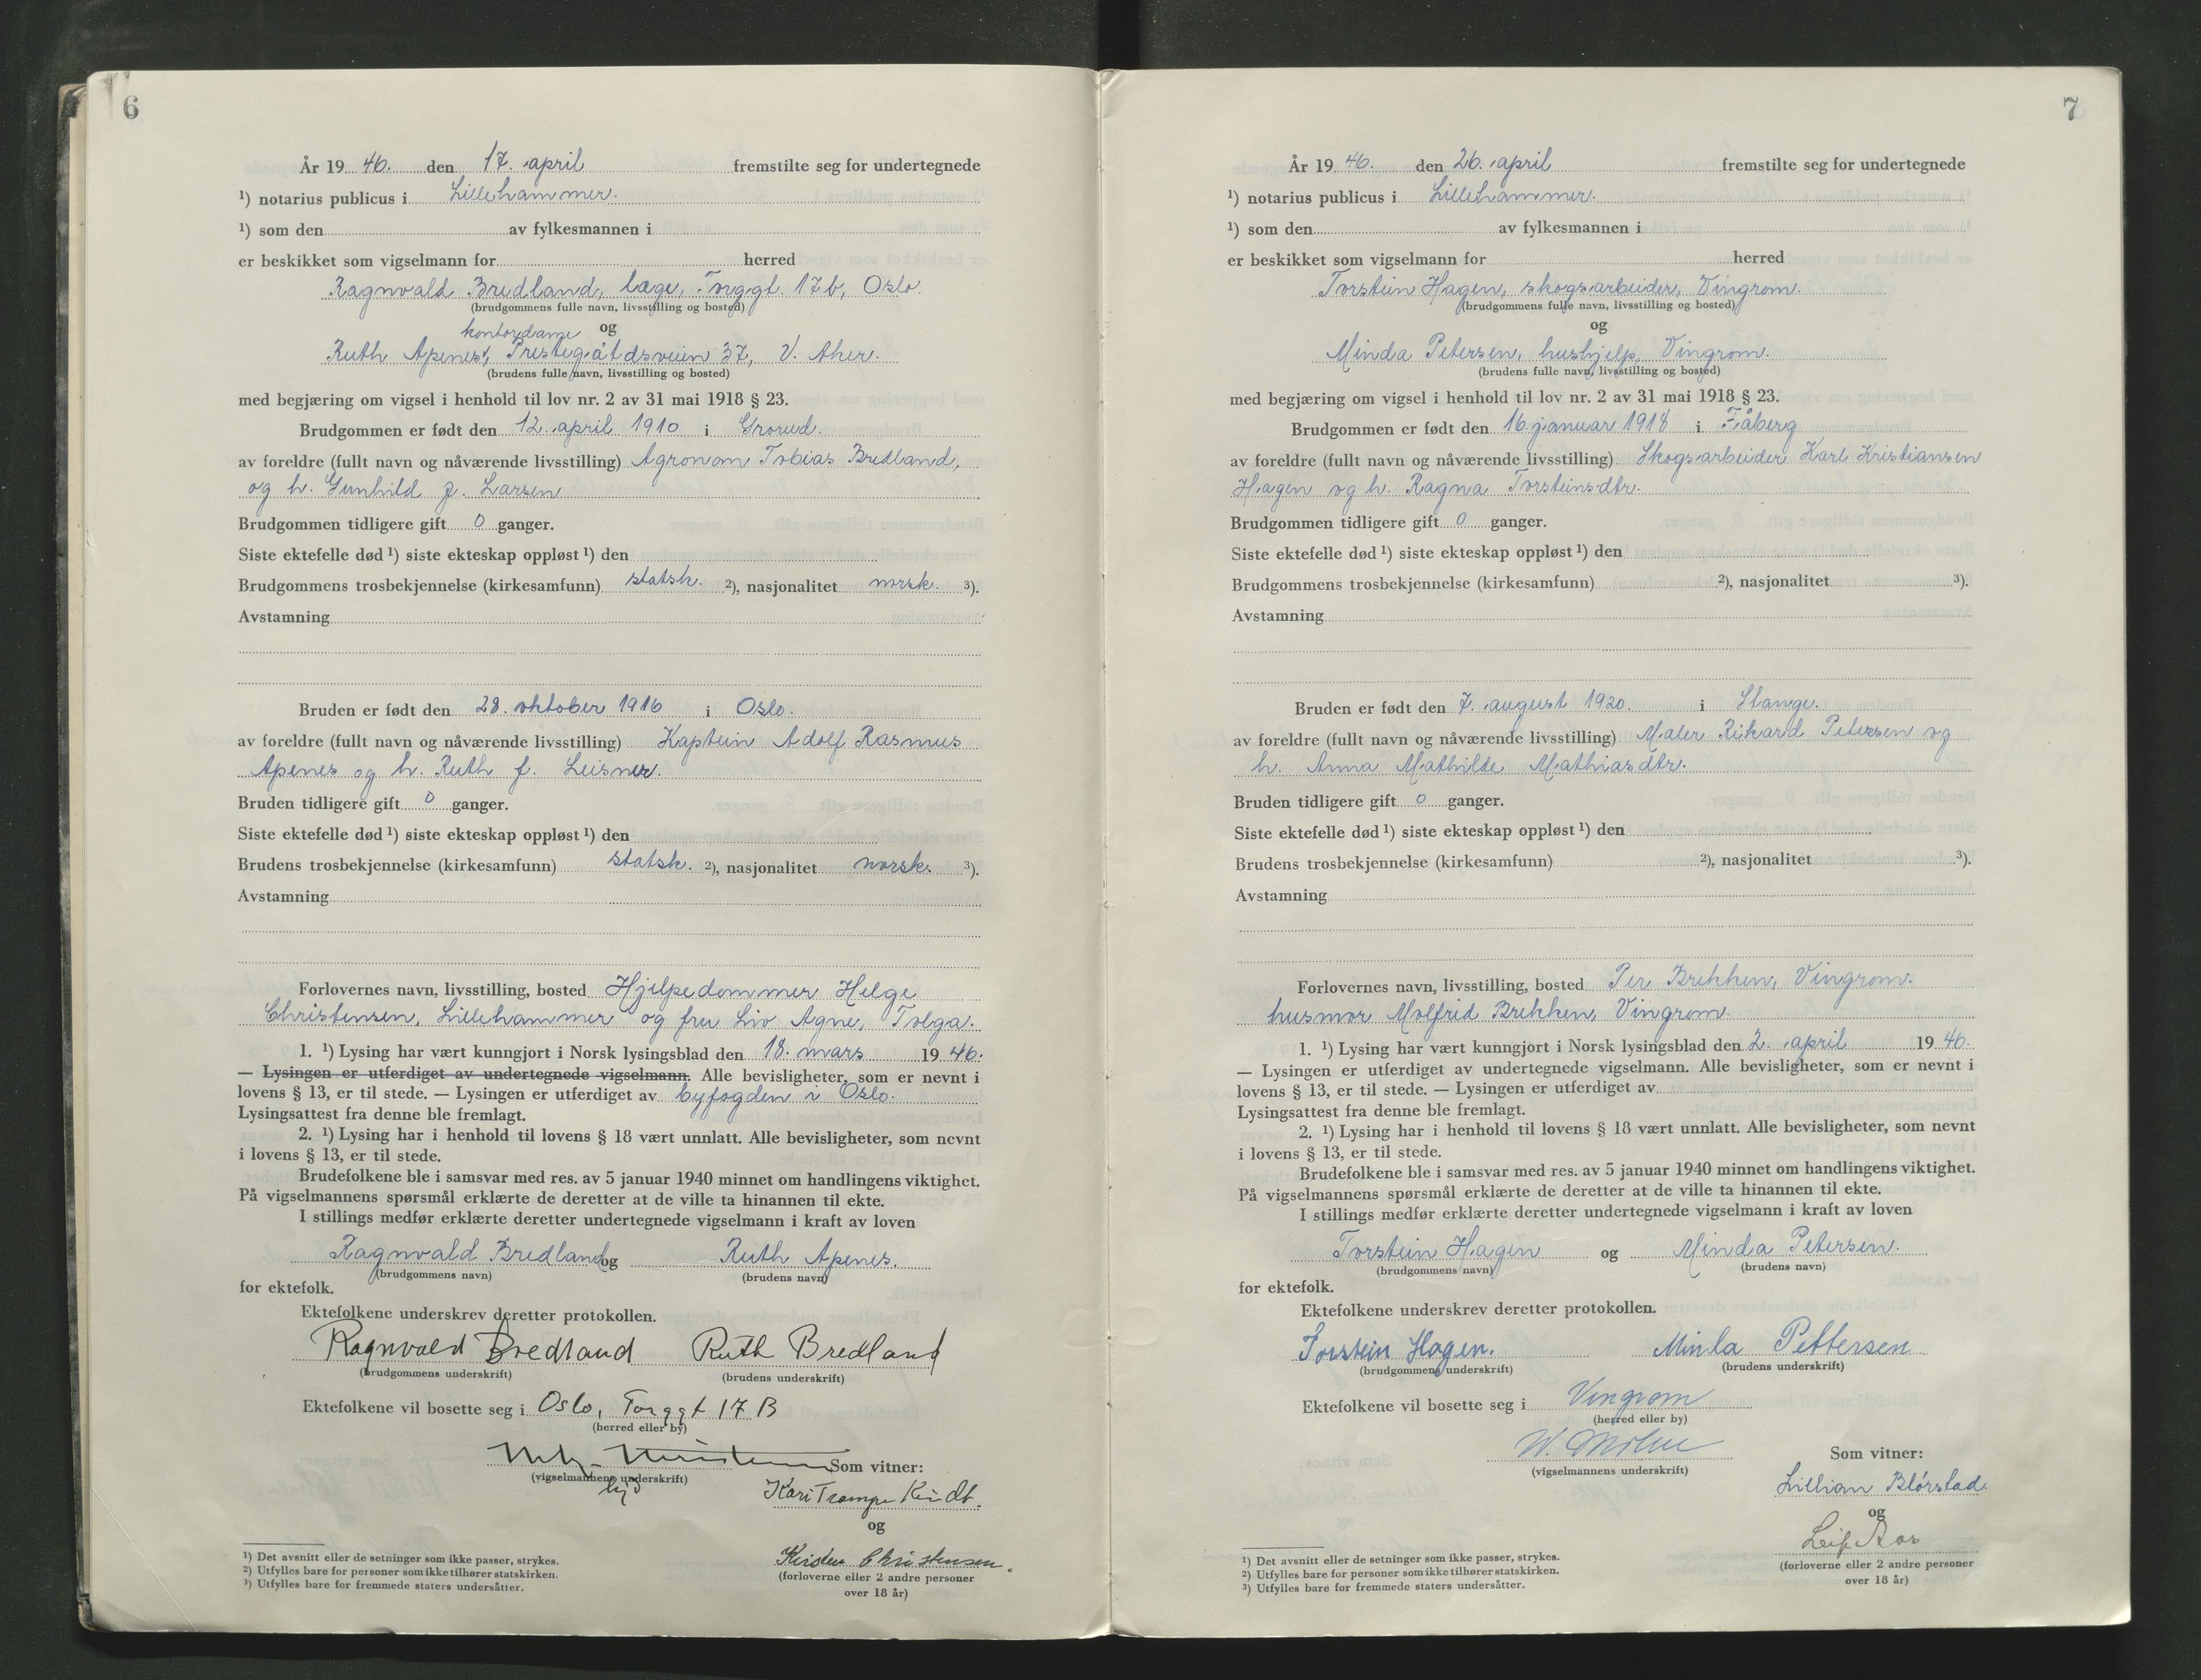 6
År 19 46. den 17. april fremstilte seg for undertegnede
¹) notarius publicus i Lillehammer.
¹) som den av fylkesmannen i
er beskikket som vigselmann for herred
Ragnvald Bredland, læge, Torggt. 17b, Oslo.
(brudgommens fulle navn, livsstilling og bosted)
kontordame og
Ruth Apenes, Prestegårdsveien 37, V. Aker.
(brudens fulle navn, livsstilling og bosted)
med begjæring om vigsel i henhold til lov nr. 2 av 31 mai 1918 § 23.
Brudgommen er født den 12. april 1910 i Grorud.
av foreldre (fullt navn og nåværende livsstilling) Agronom Tobias Bredland,
og h. Gunhild f. Larsen
Brudgommen tidligere gift 0 ganger.
Siste ektefelle død ¹) siste ekteskap oppløst ¹) den
Brudgommens trosbekjennelse (kirkesamfunn) statsk. ²), nasjonalitet norsk. ³).
Avstamning
Bruden er født den 28. oktober 1916 i Oslo.
av foreldre (fullt navn og nåværende livsstilling) Kaptein Adolf Rasmus
Apenes og h. Ruth f. Leisner.
Bruden tidligere gift 0 ganger.
Siste ektefelle død ¹) siste ekteskap oppløst ¹) den
Brudens trosbekjennelse (kirkesamfunn) statsk. ²), nasjonalitet norsk. ³).
Avstamning
Forlovernes navn, livsstilling, bosted Hjelpedommer Helge
Christensen, Lillehammer og fru Liv Agne, Tolga.
1. ¹) Lysing har vært kunngjort i Norsk lysingsblad den 18. mars 19 46.
— Lysingen er utferdiget av undertegnede vigselmann. Alle bevisligheter, som er nevnt i
lovens § 13, er til stede. — Lysingen er utferdiget av byfogden i Oslo.
Lysingsattest fra denne ble fremlagt.
2. ¹) Lysing har i henhold til lovens § 18 vært unnlatt. Alle bevisligheter, som nevnt
i lovens § 13, er til stede.
Brudefolkene ble i samsvar med res. av 5 januar 1940 minnet om handlingens viktighet.
På vigselmannens spørsmål erklærte de deretter at de ville ta hinannen til ekte.
I stillings medfør erklærte deretter undertegnede vigselmann i kraft av loven
Ragnvald Bredland og Ruth Apenes.
(brudgommens navn) (brudens navn)
for ektefolk.
Ektefolkene underskrev deretter protokollen.
Ragnvald Bredland Ruth Bredland
(brudgommens underskrift) (brudens underskrift)
Ektefolkene vil bosette seg i Oslo, Torggt 17 B
(herred eller by)
Som vitner:
(vigselmannens underskrift)
Kari Trampe Kindt.
og
Kirsten Christensen.
(forloverne eller 2 andre personer
over 18 år)
¹) Det avsnitt eller de setninger som ikke passer, strykes.
²) Utfylles bare for personer som ikke tilhører statskirken.
³) Utfylles bare for fremmede staters undersåtter.
7
År 19 46. den 26. april fremstilte seg for undertegnede
¹) notarius publicus i Lillehammer.
¹) som den av fylkesmannen i
er beskikket som vigselmann for herred
Torstein Hagen, skogsarbeider, Vingrom.
(brudgommens fulle navn, livsstilling og bosted)
og
Minda Petersen, hushjelp, Vingrom.
(brudens fulle navn, livsstilling og bosted)
med begjæring om vigsel i henhold til lov nr. 2 av 31 mai 1918 § 23.
Brudgommen er født den 16. januar 1918 i Fåberg
av foreldre (fullt navn og nåværende livsstilling) Skogsarbeider Karl Kristiansen
Hagen og h. Ragna Torsteinsdtr.
Brudgommen tidligere gift 0 ganger.
Siste ektefelle død ¹) siste ekteskap oppløst ¹) den
Brudgommens trosbekjennelse (kirkesamfunn) ²), nasjonalitet ³).
Avstamning
Bruden er født den 7. august 1920. i Stange.
av foreldre (fullt navn og nåværende livsstilling) Maler Rikard Petersen og
h. Anna Mathilde Mathiasdtr.
Bruden tidligere gift 0 ganger.
Siste ektefelle død ¹) siste ekteskap oppløst ¹) den
Brudens trosbekjennelse (kirkesamfunn) ²), nasjonalitet ³).
Avstamning
Forlovernes navn, livsstilling, bosted Per Brekken, Vingrom.
husmor Molfrid Brekken, Vingrom.
1. ¹) Lysing har vært kunngjort i Norsk lysingsblad den 2. april 19 46.
— Lysingen er utferdiget av undertegnede vigselmann. Alle bevisligheter, som er nevnt i
lovens § 13, er til stede. — Lysingen er utferdiget av
Lysingsattest fra denne ble fremlagt.
2. ¹) Lysing har i henhold til lovens § 18 vært unnlatt. Alle bevisligheter, som nevnt
i lovens § 13, er til stede.
Brudefolkene ble i samsvar med res. av 5 januar 1940 minnet om handlingens viktighet.
På vigselmannens spørsmål erklærte de deretter at de ville ta hinannen til ekte.
I stillings medfør erklærte deretter undertegnede vigselmann i kraft av loven
Torstein Hagen og Minda Petersen.
(brudgommens navn) (brudens navn)
for ektefolk.
Ektefolkene underskrev deretter protokollen.
Torstein Hagen. Minla Pettersen
(brudgommens underskrift) (brudens underskrift)
Ektefolkene vil bosette seg i Vingrom
(herred eller by)
Som vitner:
(vigselmannens underskrift)
Lillian Blørstad.
og
Leif Aas
(forloverne eller 2 andre personer
over 18 år)
¹) Det avsnitt eller de setninger som ikke passer, strykes.
²) Utfylles bare for personer som ikke tilhører statskirken.
³) Utfylles bare for fremmede staters undersåtter.